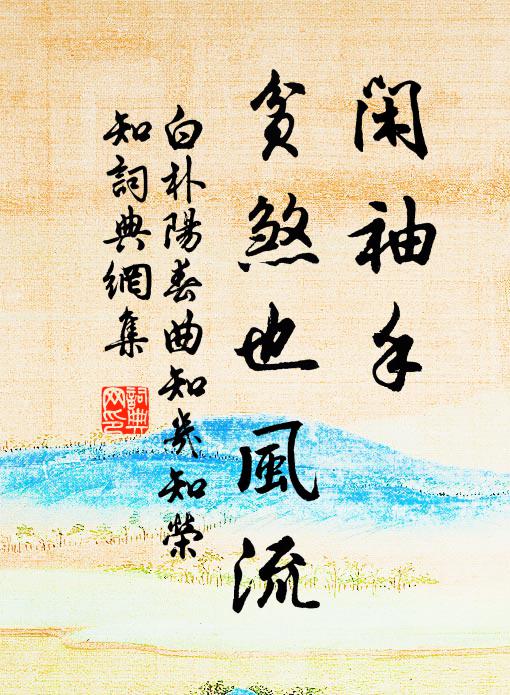 閑袖手
貧煞也風流
白朴陽春曲知幾知榮
知詞典網集
詞典
网印